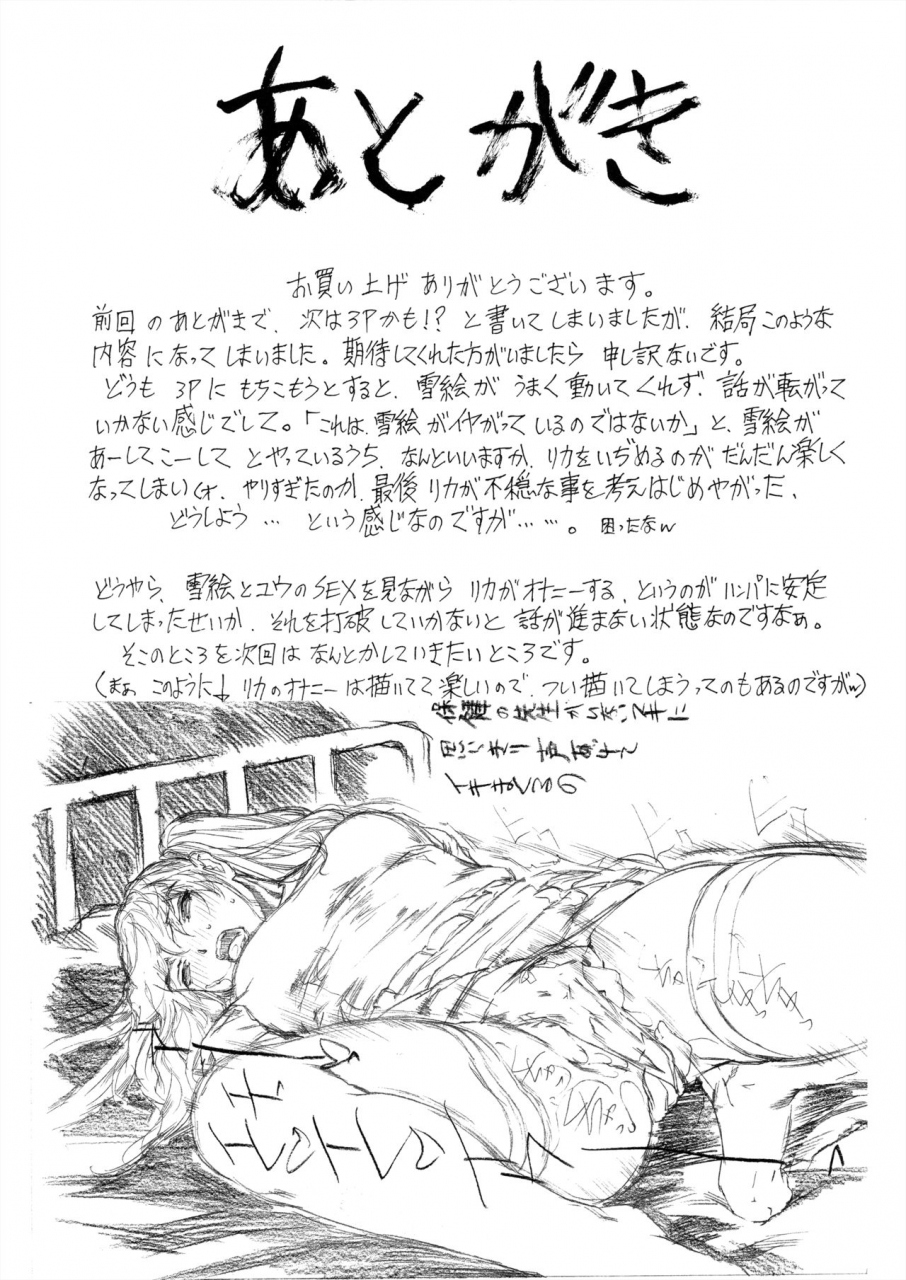 あとがき
お買い上げ ありがとうございます。
前回のあとがきで、次は3Pかも!?と書いてしまいましたが、結局このような
内容になってしまいました。期待してくれた方がいましたら 申し訳ないです。
どうも 3Pに もちこもうとすると、雪絵が うまく動いてくれず、話が転がって
いかない感じでして。「これは、雪絵がイヤがっているのではないか」と、雪絵が
あーしてこーして とやっているうち、なんといいますか、リカをいぢめるのが だんだん楽しく
なってしまい、やりすぎたのか、最後 リカが不穏な事を考えはじめやがった、
どうしよう… という感じなのですが……。 困ったなw
どうやら、雪絵とユウのSEXを見ながら リカがオナニーする、というのが ハンパに安定
してしまったせいか、それを打破していかないと 話が進まない状態なのですなぁ。
そこのところを次回は なんとかしていきたいところです。
(まぁ このように↓ リカのオナニーは描いてて楽しいので、つい描いてしまうってのもあるのですがw)